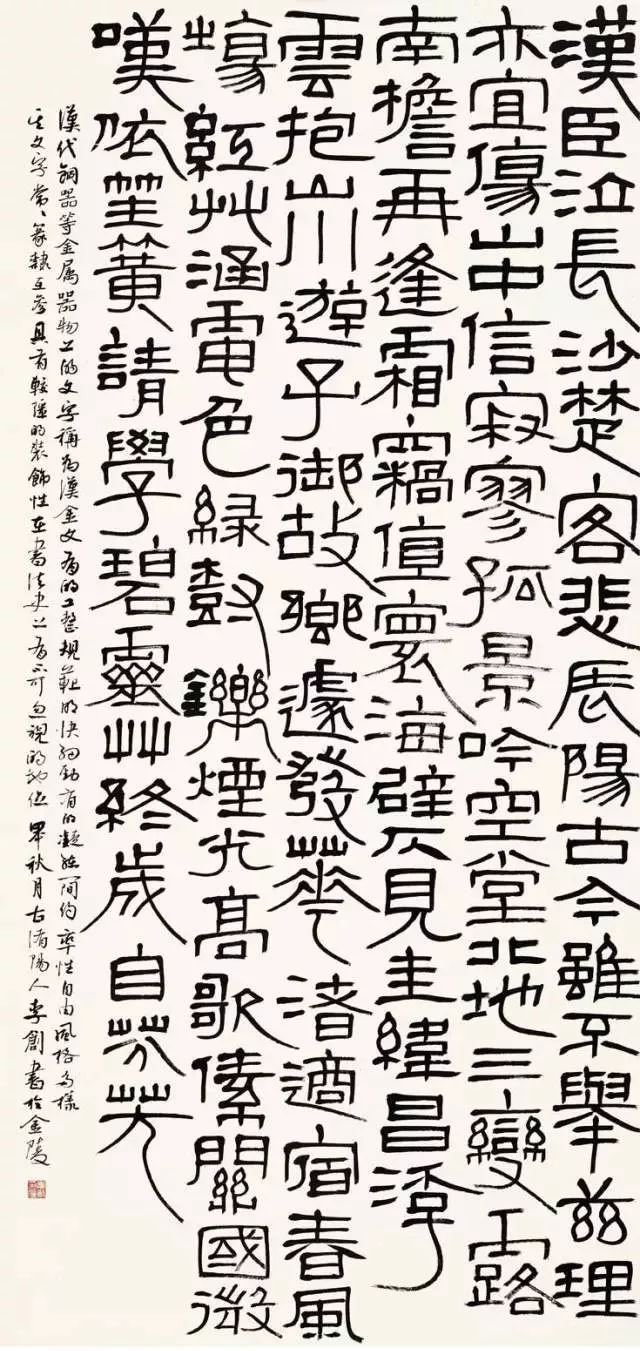 漢臣泣長沙楚客悲辰陽古今雖不舉茲理
亦宜傷山中信寂寥孤景吟空堂北地三變露
南檐再逢霜竊值寰海辟仄見圭緯昌浮
雲抱山川遊子御故鄉遽發華渚適宿春風
場紅艸涵電色綠樹鑠煙光高歌傃關國微
嘆依笙簧請學碧靈艸終歲自芬芳
漢代銅器等金属器物上的文字稱為漢金文有的工整規範明快細勁有的凝練簡約率性自由風格多樣
其文字常常篆隸互参具有較强的装飾性在書法史上有不可忽視的地位 秋月古淯陽人李創書於金陵